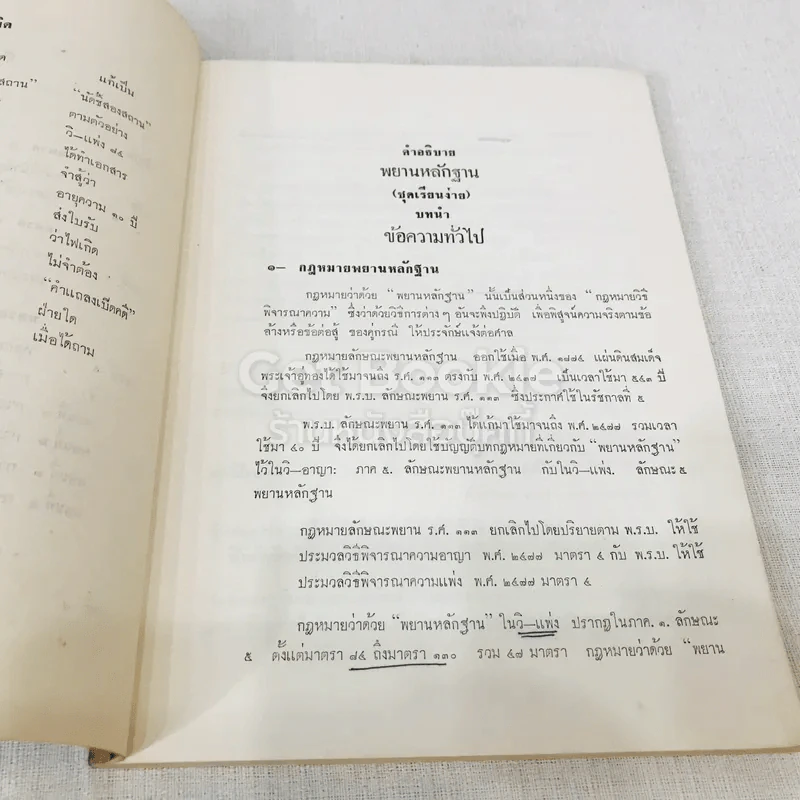 แก้เป็น
"นัดชี้สองสถาน"
ตามตัวอย่าง
วิ—แพ่ง ๘๔
ได้ทำเอกสาร
จำสู้ว่า
อายุความ ๑๐ ปี
ส่งใบรับ
ว่าไฟเกิด
ไม่จำต้อง
"คำแถลงเปิดคดี"
ฝ่ายใด
เมื่อได้ถาม
คำอธิบาย
พยานหลักฐาน
(ชุดเรียนง่าย)
บทนำ
ข้อความทั่วไป
๑— กฎหมายพยานหลักฐาน
กฎหมายว่าด้วย "พยานหลักฐาน" นั้นเป็นส่วนหนึ่งของ "กฎหมายวิธี
พิจารณาความ" ซึ่งว่าด้วยวิธีการต่างๆ อันจะพึงปฏิบัติ เพื่อพิสูจน์ความจริงตามข้อ
อ้างหรือข้อต่อสู้ ของคู่กรณี ให้ประจักษ์แจ้งต่อศาล
กฎหมายลักษณะพยานหลักฐาน ออกใช้เมื่อ พ.ศ. ๑๘๙๔ แผ่นดินสมเด็จ
พระเจ้าอู่ทองได้ใช้มาจนถึง ร.ศ. ๑๑๓ ตรงกับ พ.ศ. ๒๔๓๗ เป็นเวลาใช้มา ๕๔๓ ปี
จึงยกเลิกไปโดย พ.ร.บ. ลักษณะพยาน ร.ศ. ๑๑๓ ซึ่งประกาศใช้ในรัชกาลที่ ๕
พ.ร.บ. ลักษณะพยาน ร.ศ. ๑๑๓ ได้แก้มาใช้มาจนถึง พ.ศ. ๒๔๗๗ รวมเวลา
ใช้มา ๔๐ ปี จึงได้ยกเลิกไปโดยใช้บัญญัติบทกฎหมายที่เกี่ยวกับ "พยานหลักฐาน"
ไว้ในวิ—อาญา: ภาค ๕. ลักษณะพยานหลักฐาน กับในวิ—แพ่ง. ลักษณะ ๕
พยานหลักฐาน
กฎหมายลักษณะพยาน ร.ศ. ๑๑๓ ยกเลิกไปโดยปริยายตาม พ.ร.บ. ให้ใช้
ประมวลวิธีพิจารณาความอาญา พ.ศ. ๒๔๗๗ มาตรา ๔ กับ พ.ร.บ. ให้ใช้
ประมวลวิธีพิจารณาความแพ่ง พ.ศ. ๒๔๗๗ มาตรา ๔
กฎหมายว่าด้วย "พยานหลักฐาน" ในวิ—แพ่ง ปรากฏในภาค. ๑. ลักษณะ
๕ ตั้งแต่มาตรา ๘๔ ถึงมาตรา ๑๓๐ รวม ๔๗ มาตรา กฎหมายว่าด้วย "พยาน